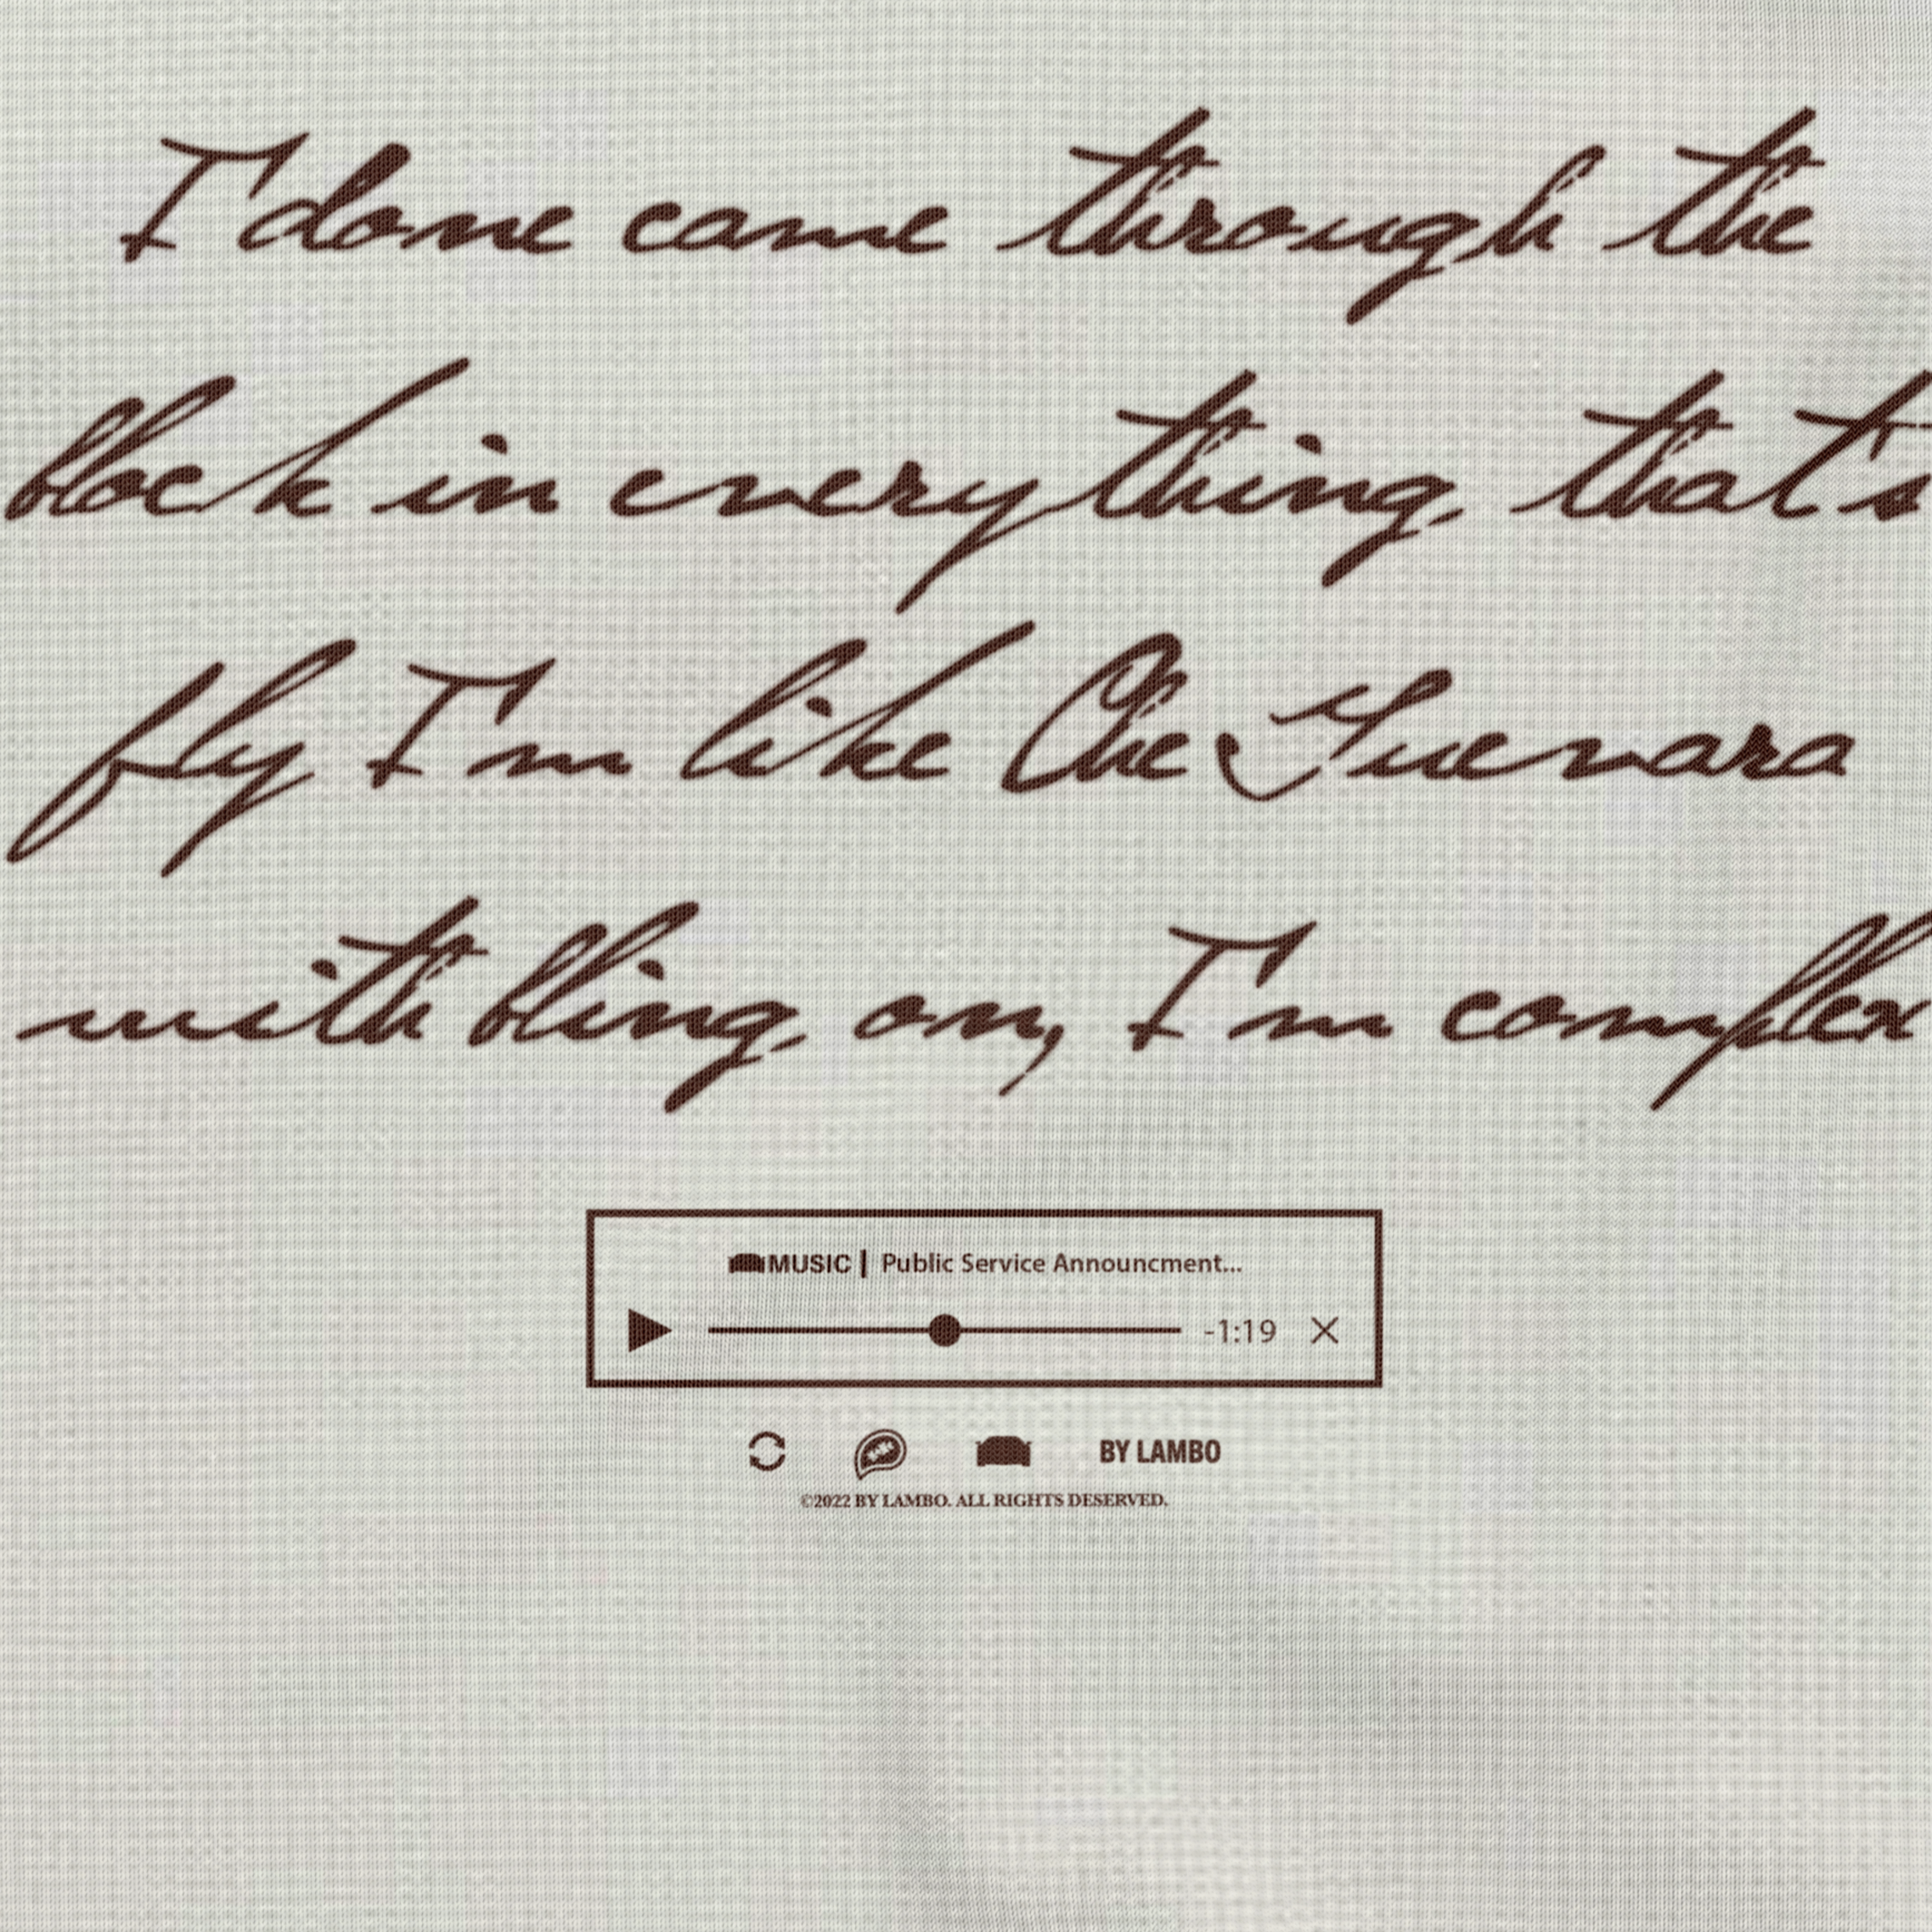 I done came through the
block in everything that's
fly I'm like Che Guevara
with bling on, I'm complex
MUSIC | Public Service Announcment...
-1:19
BY LAMBO
©2022 BY LAMBO. ALL RIGHTS DESERVED.